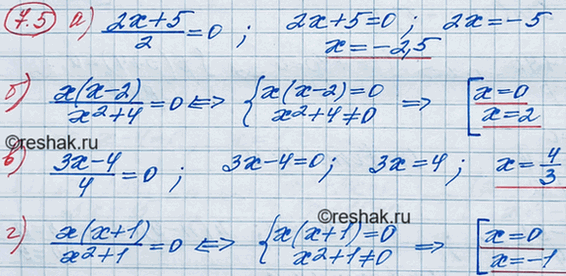 7.5 а) (2x+5)/2 = 0 ; 2x+5=0 ; 2x=-5
x=-2,5
б) x(x-2)/(x²+4) = 0 <=> { x(x-2)=0 ; x²+4≠0 => [ x=0 ; x=2
©reshak.ru
в) (3x-4)/4 = 0 ; 3x-4=0 ; 3x=4 ; x=4/3
©reshak.ru
г) x(x+1)/(x²+1) = 0 <=> { x(x+1)=0 ; x²+1≠0 => [ x=0 ; x=-1